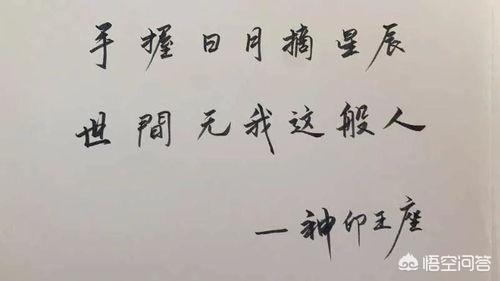 手握日月摘星辰
世間无我这般人
一神印王座
悟空问答